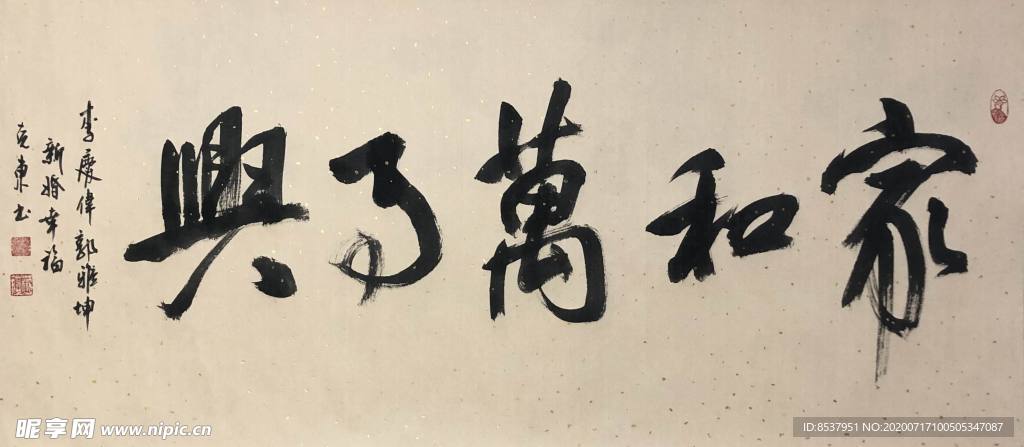 家和萬事興
李慶偉郭雅坤
新婚幸福
克東书
昵享网 www.nipic.cn
ID:8537951 NO:20200717100505347087